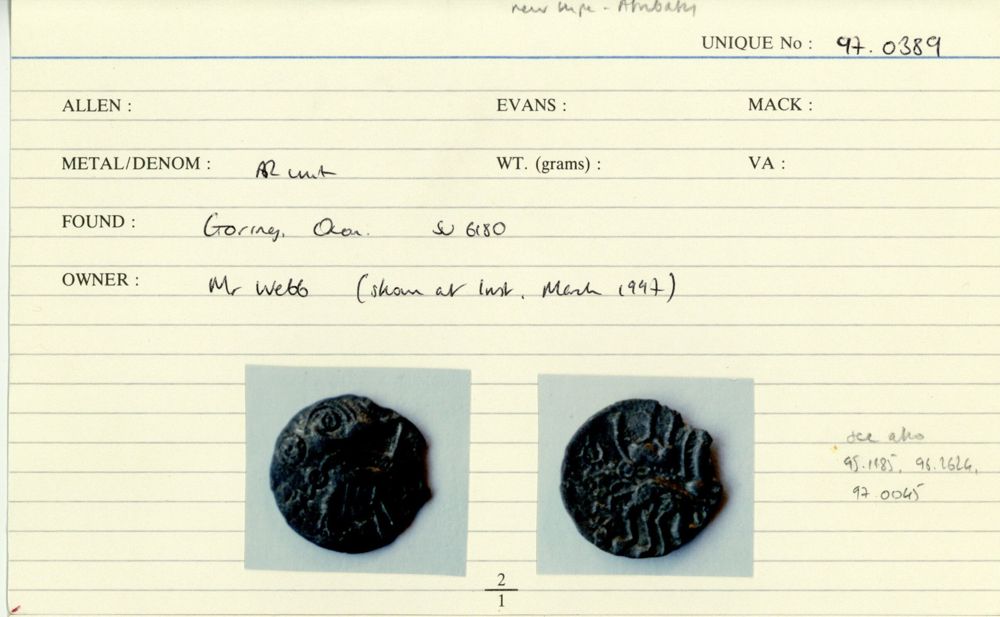 new type - Atrebatic
UNIQUE No : 97.0389
ALLEN : EVANS : MACK :
METAL/DENOM : AR unit WT. (grams) : VA :
FOUND : Goring, Oxon. SU 6180
OWNER : Mr Webb (shown at Inst, March 1997)
see also
95.1185, 96.2624,
97.0045
2
1